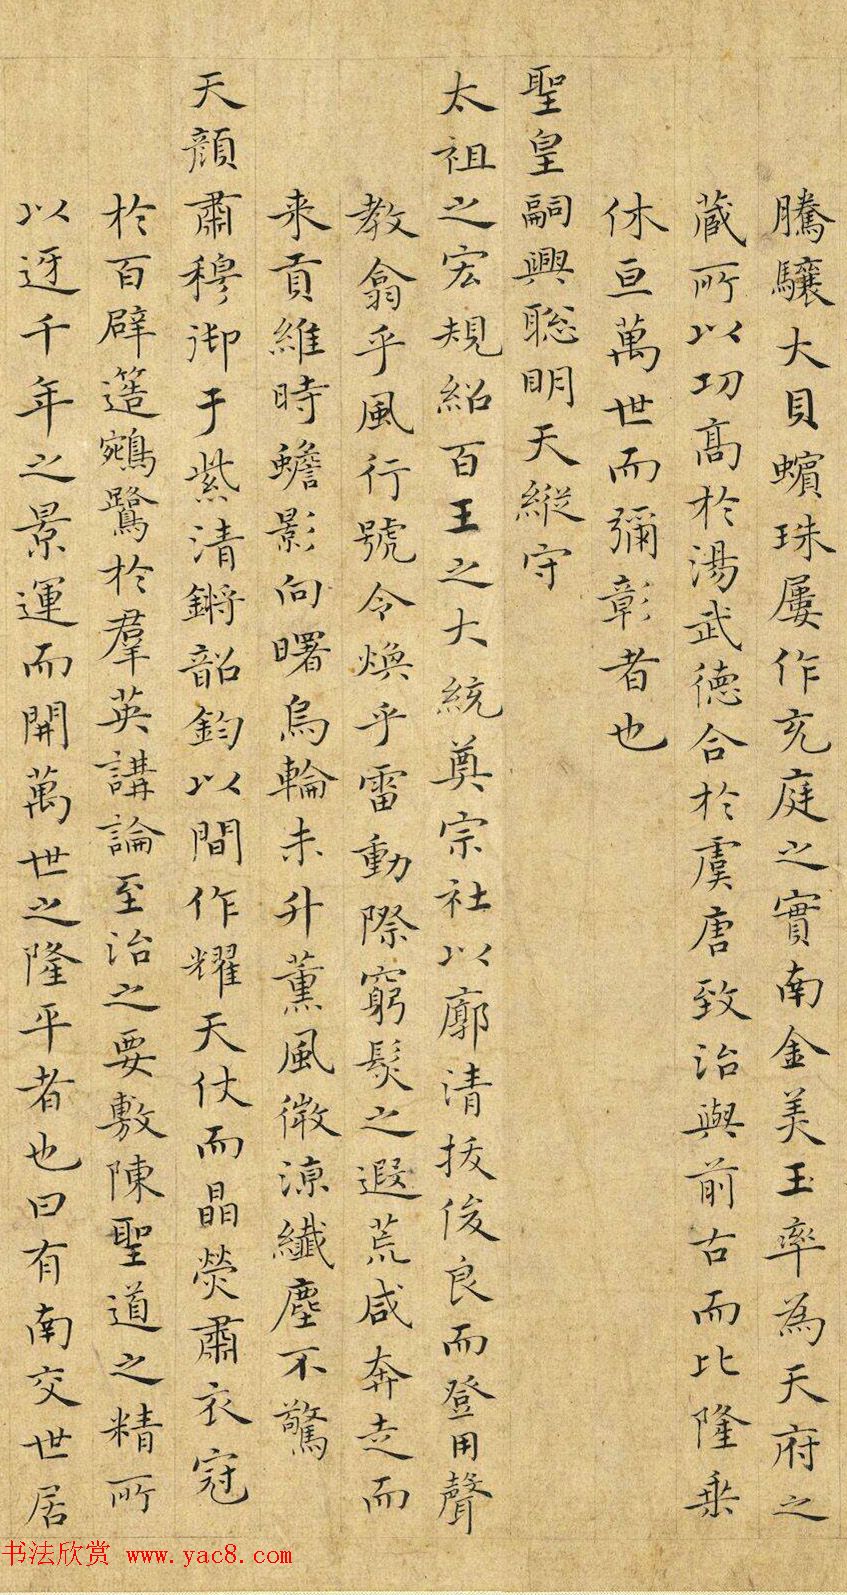 騰驤大貝蠙珠屢作充庭之實南金美玉率為天府之
蔵所以功髙於湯武德合於虞唐致治與前古而比隆乗
休亘萬世而彌彰者也
聖皇嗣興聡明天縱守
太祖之宏規紹百王之大統奠宗社以廓清拔俊良而登用聲
教翕乎風行號令煥乎雷動際窮髮之遐荒咸奔走而
来貢維時蟾影向曙烏輪未升薫風微涼纖塵不驚
天顔肅穆御于紫清鏘韶鈞以間作耀天仗而晶熒肅衣冠
於百辟簉鵷鷺於羣英講論至治之要敷陳聖道之精所
以迓千年之景運而開萬世之隆平者也曰有南交世居
书法欣赏 www.yac8.com